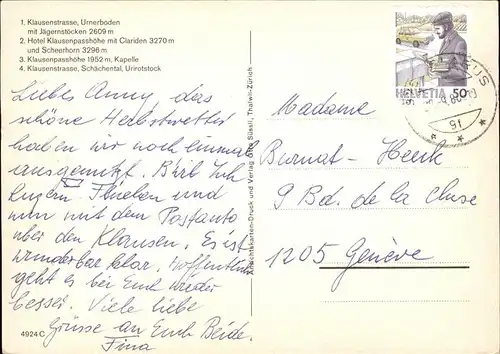 1. Klausenstrasse, Urnerboden
mit Jägernstöcken 2609 m
2. Hotel Klausenpasshöhe mit Clariden 3270 m
und Scheerhorn 3296 m
3. Klausenpasshöhe 1952 m, Kapelle
4. Klausenstrasse, Schächental, Urirotstock
Liebes Anny, das
schöne Herbstwetter
haben wir noch einmal
ausgenutzt.
Luzern Flüelen und
nun mit dem Postauto
über den Klausen. Es ist
wunderbar klar. Hoffentlich
geht es bei Euch wieder
besser. Viele liebe
Grüsse an Euch Beide.
Fina
4924 C
Ansichtskarten-Druck und Verlag Otto Süssli, Thalwil-Zürich
HELVETIA 50
16
Madame
Burnat-Heuk
9 Bd. de la Cluse
1205 Genève